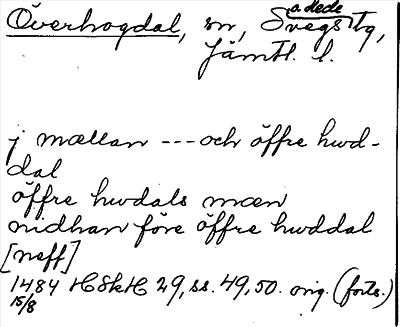 Överhogdal, sn, Svegs tg,
a. Hede
Jämtl. l.
j mællan --- och öffre hwd-
dal
öffre hwdals mæn
nidhan före öffre hwddal
[neff]
1484 HSkH 29, ss. 49, 50. orig. (forts.)
15/8